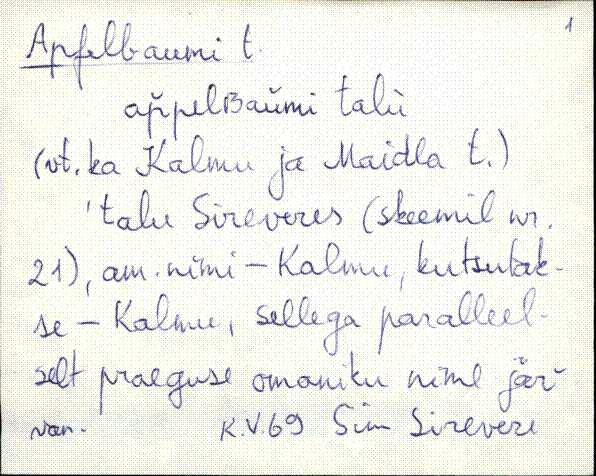 1
Apfelbaumi t.
ap̆pelBaŭmi talù
(vt. ka Kalmu ja Maidla t.)
'talu Sireveres (skeemil nr.
21), am. nimi – Kalmu, kutsutak-
se – Kalmu, sellega paralleel-
selt praeguse omaniku nime jär-
van.
K.V.69 Sim Sirevere